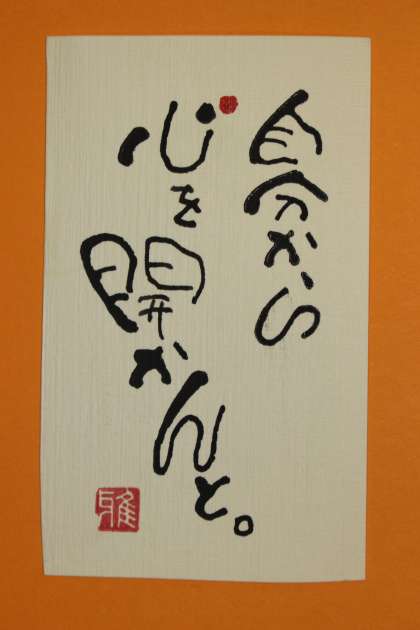 自分から
心を
開かんと。
雅